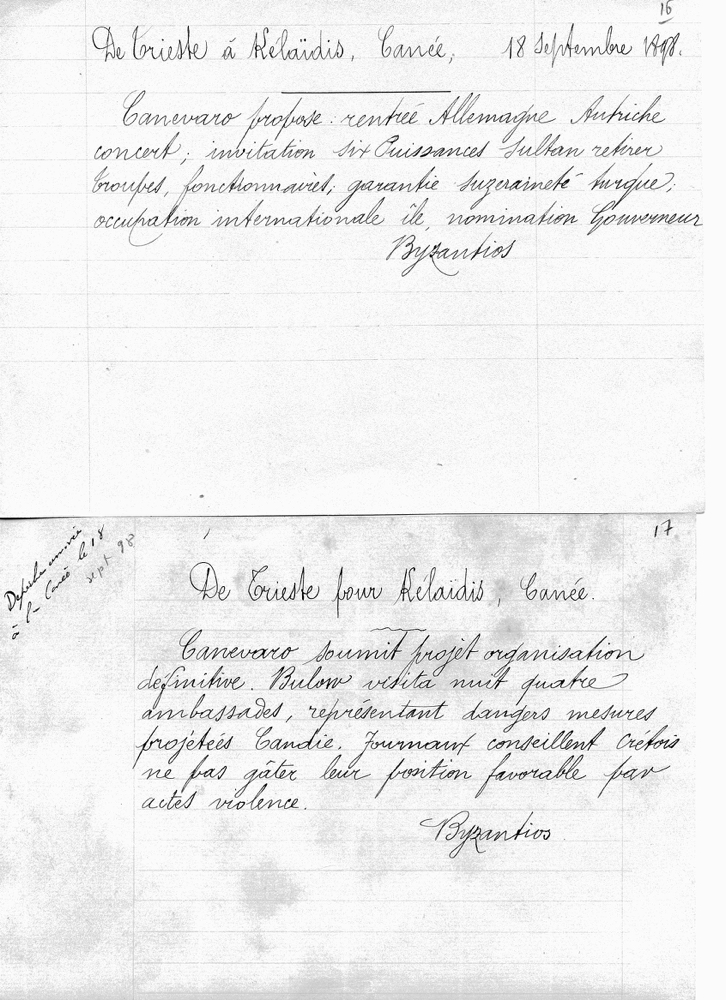 16
De Trieste à Kélaïdis, Canée, 18 Septembre 1898.
Canevaro propose: rentrée Allemagne Autriche
concert; invitation six Puissances Sultan retirer
troupes, fonctionnaires; garantie suzeraineté turque;
occupation internationale île, nomination Gouverneur
Byzantios
17
Depeche envoyée
à la Canée le 18
sept 98
De Trieste pour Kélaïdis, Canée.
Canevaro soumit projet organisation
définitive. Bulow visita nuit quatre
ambassades, représentant dangers mesures
projétées Candie. Journaux conseillent Crétois
ne pas gâter leur position favorable par
actes violence.
Byzantios.